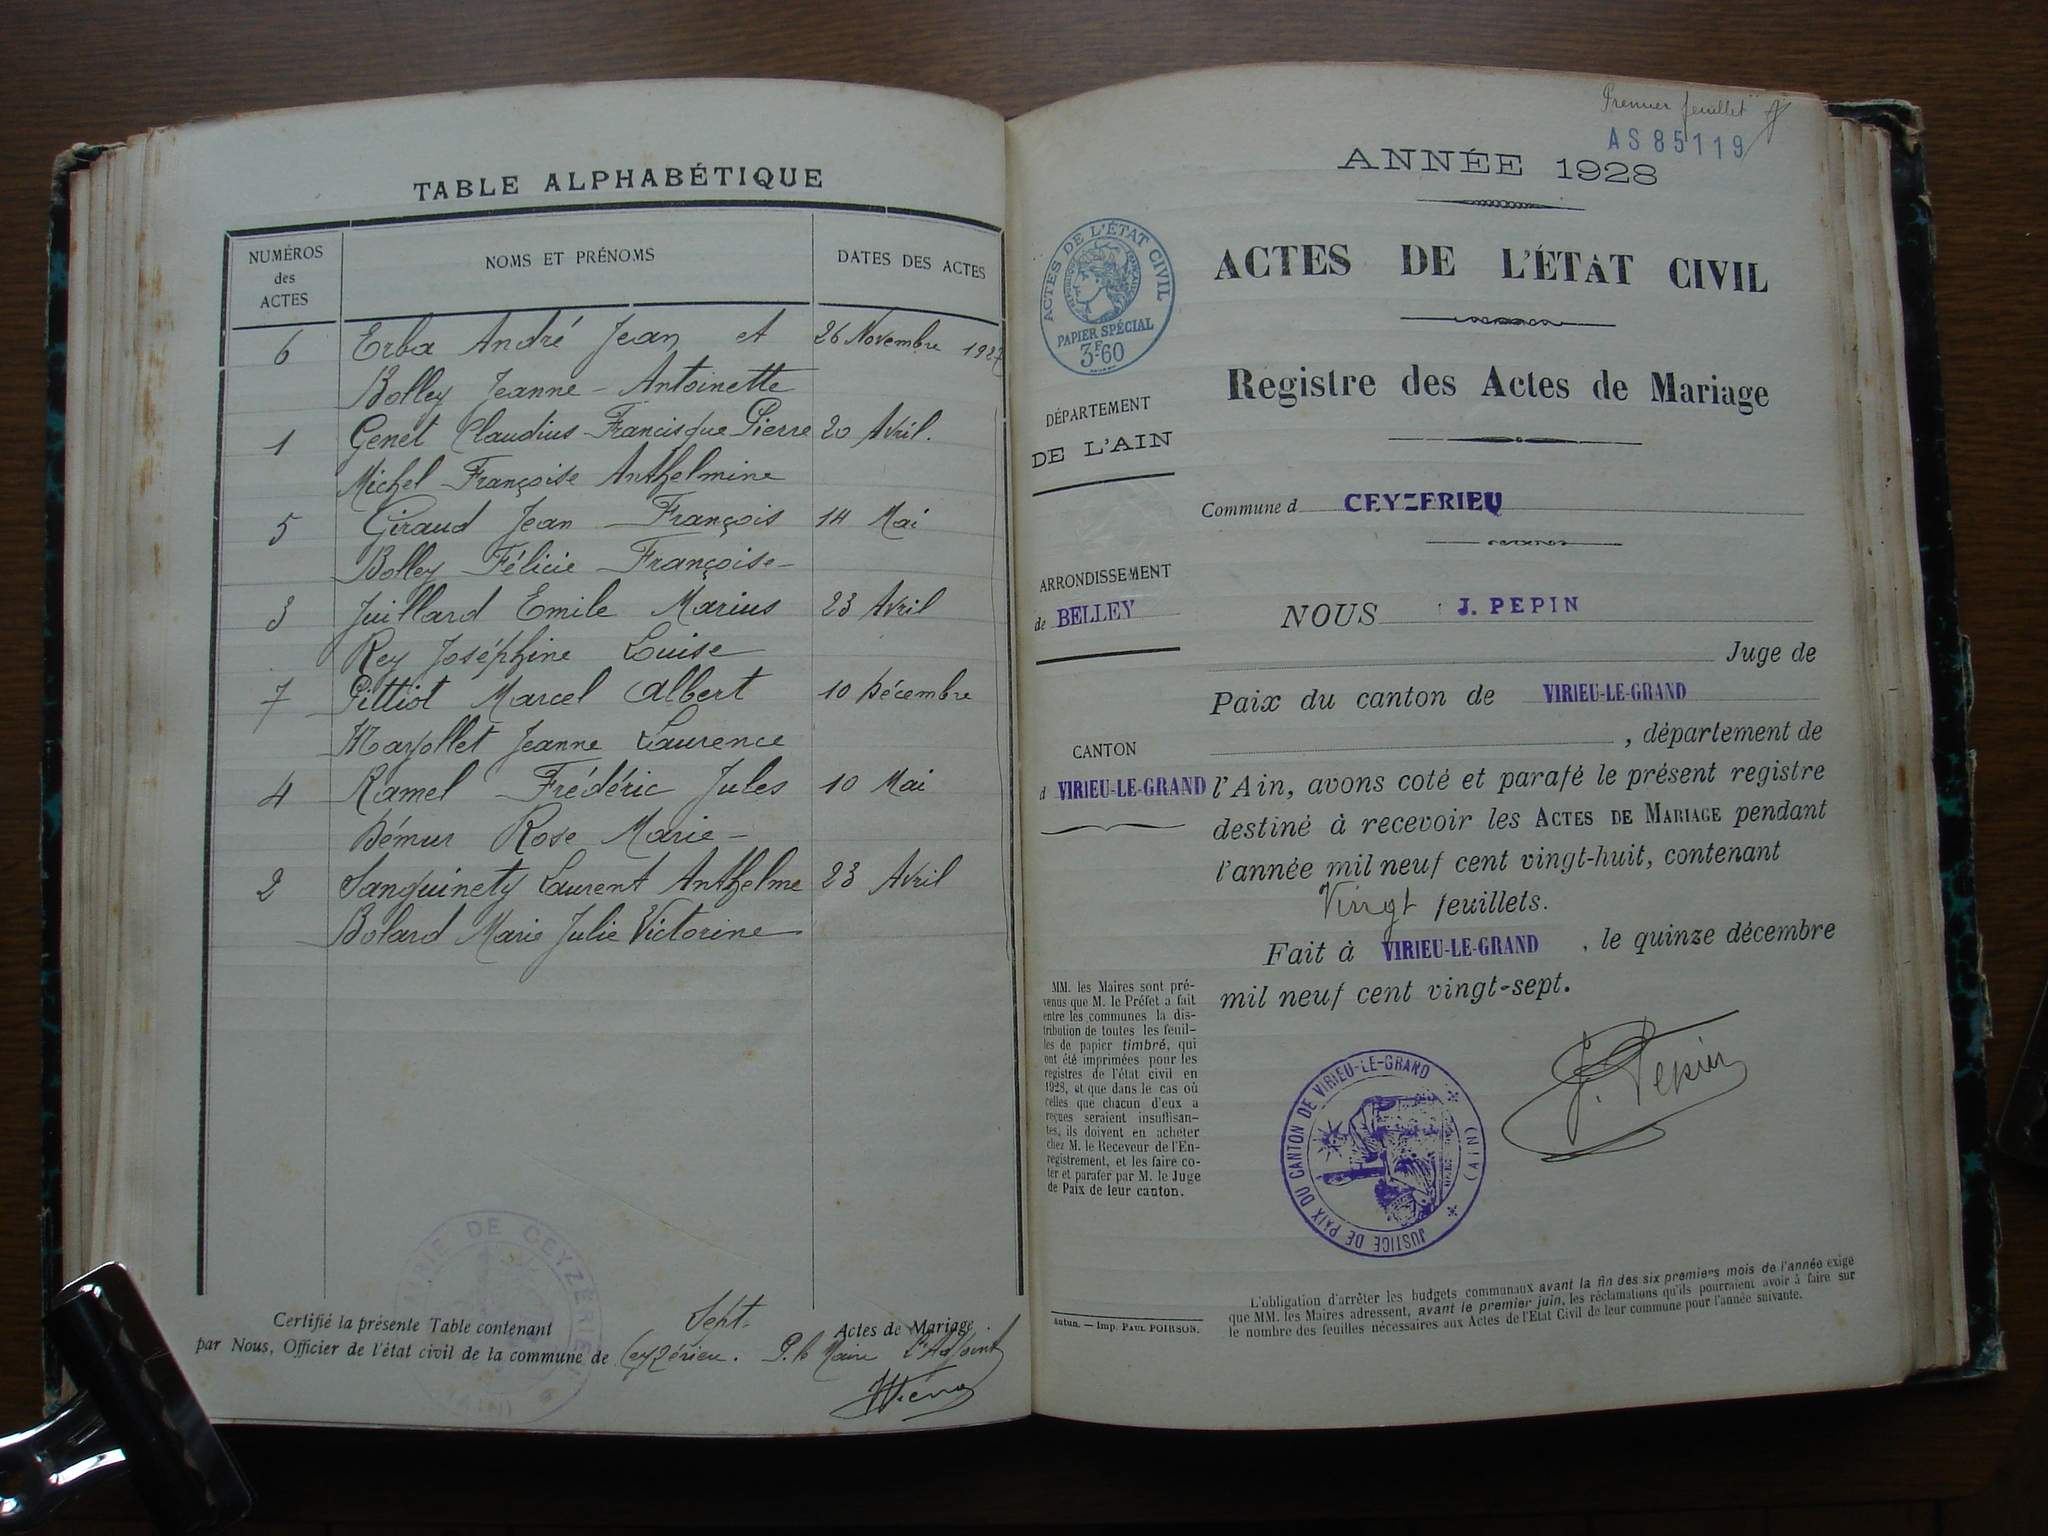 TABLE ALPHABÉTIQUE
NUMÉROS des ACTES
NOMS ET PRÉNOMS
DATES DES ACTES
6 Erba André Jean et 26 Novembre 1927
Bolley Jeanne - Antoinette
1 Genet Claudius Francisque Pierre 20 Avril.
Michel Françoise Anthelmine
5 Giraud Jean - François 14 Mai
Bolley Félicie Françoise -
3 Juillard Emile Marius 23 Avril
Rey Joséphine Louise
7 Pittiot Marcel Albert 10 Décembre
Mayollet Jeanne Laurence
4 Ramel Frédéric Jules 10 Mai
Démur Rose Marie -
2 Sanguinety Laurent Anthelme 23 Avril
Bolard Marie Julie Victorine
MAIRIE DE CEYZÉRIEU
(AIN)
Certifié la présente Table contenant Sept. Actes de Mariage
par Nous, Officier de l'état civil de la commune de Ceyzérieu. P. le Maire L'Adjoint
Premier feuillet
AS 85119
ANNÉE 1928
ACTES DE L'ÉTAT CIVIL
RÉPUBLIQUE FRANÇAISE
PAPIER SPÉCIAL
3F60
ACTES DE L'ÉTAT CIVIL
Registre des Actes de Mariage
DÉPARTEMENT
DE L'AIN
Commune d CEYZERIEU
ARRONDISSEMENT
de BELLEY
NOUS J. PEPIN
Juge de
Paix du canton de VIRIEU-LE-GRAND
, département de
CANTON
d VIRIEU-LE-GRAND
l'Ain, avons coté et parafé le présent registre
destiné à recevoir les ACTES DE MARIAGE pendant
l'année mil neuf cent vingt-huit, contenant
Vingt feuillets.
Fait à VIRIEU-LE-GRAND , le quinze décembre
mil neuf cent vingt-sept.
MM. les Maires sont pré-
venus que M. le Préfet a fait
entre les communes la dis-
tribution de toutes les feuil-
les de papier timbré, qui
ont été imprimées pour les
registres de l'état civil en
1928, et que dans le cas où
celles que chacun d'eux a
reçues seraient insuffisan-
tes, ils doivent en acheter
chez M. le Receveur de l'En-
registrement, et les faire co-
ter et parafer par M. le Juge
de Paix de leur canton.
J. Pepin
JUSTICE DE PAIX DU CANTON DE VIRIEU-LE-GRAND
(AIN)
L'obligation d'arrêter les budgets communaux avant la fin des six premiers mois de l'année exige
que MM. les Maires adressent, avant le premier juin, les réclamations qu'ils pourraient avoir à faire sur
le nombre des feuilles nécessaires aux Actes de l'Etat Civil de leur commune pour l'année suivante.
Autun. — Imp. PAUL POIRSON.